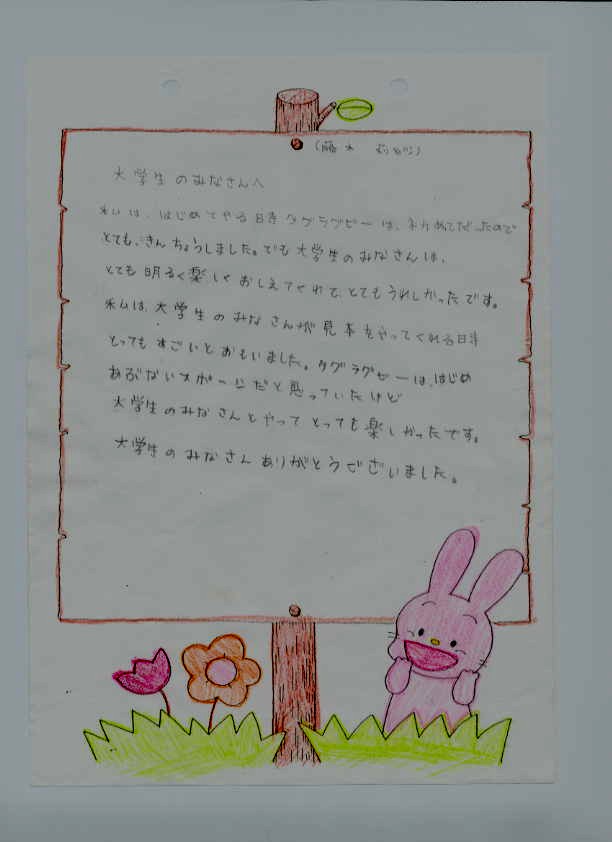 大学生のみなさんへ
私は、はじめてやる時タグラグビーは、初めてだったので
とても、きんちょうしました。でも大学生のみなさんは、
とても明るく楽しくおしえてくれて、とてもうれしかったです。
私は、大学生のみなさんが見本をやってくれる時
とってもすごいとおもいました。タグラグビーは、はじめ
あぶないスポーツだと思っていたけど
大学生のみなさんとやってとっても楽しかったです。
大学生のみなさんありがとうございました。